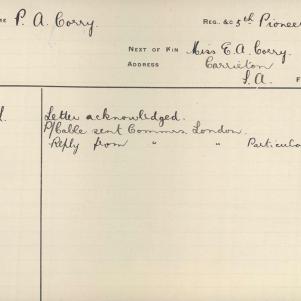 ME P. A. Corry. REG. &C 5th Pioneer
NEXT OF KIN Miss E. A. Corry.
ADDRESS Carrieton
S. A. F
d. Letter acknowledged.
P/Cable sent Commrs. London.
Reply from " " Particula